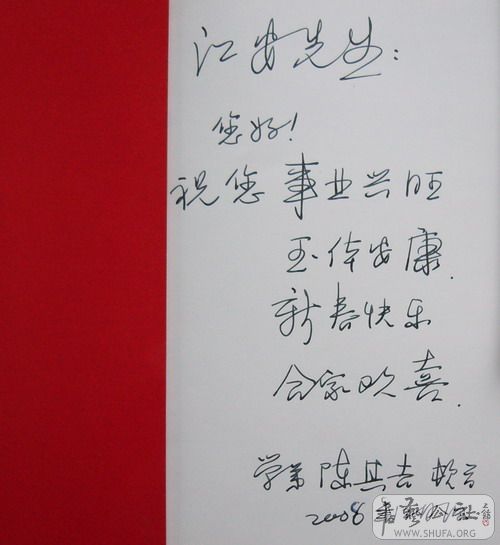 江安先生:
您好!
祝您事业兴旺
玉体安康.
新春快乐
合家欢喜.
学弟 陈其吉 敬言
2008
WWW.SHUFA.ORG